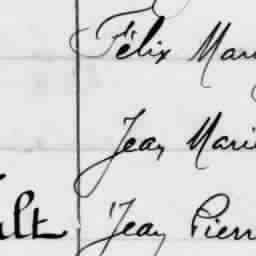 Félix Mari
Jean Marie
ult Jean Pierr